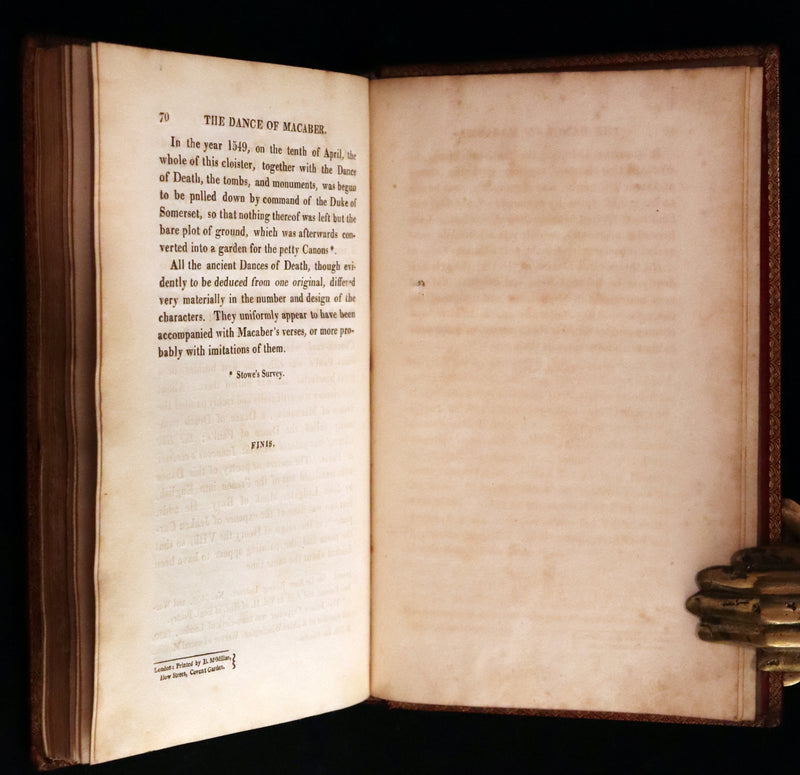 70 THE DANCE OF MACABER.
In the year 1549, on the tenth of April, the
whole of this cloister, together with the Dance
of Death, the tombs, and monuments, was begun
to be pnlled down by command of the Duke of
Somerset, so that nothing thereof was left but the
bare plot of ground, which was afterwards con-
verted into a garden for the petty Canons*.
All the ancient Dances of Death, though evi-
dently to be deduced from one original, differed
very materially in the number and design of the
characters. They uniformly appear to have been
accompanied with Macaber's verses, or more pro-
bably with imitations of them.
* Stowe's Survey.
FINIS.
London: Printed by B. M'Millan, }
Bow Street, Covent Garden.